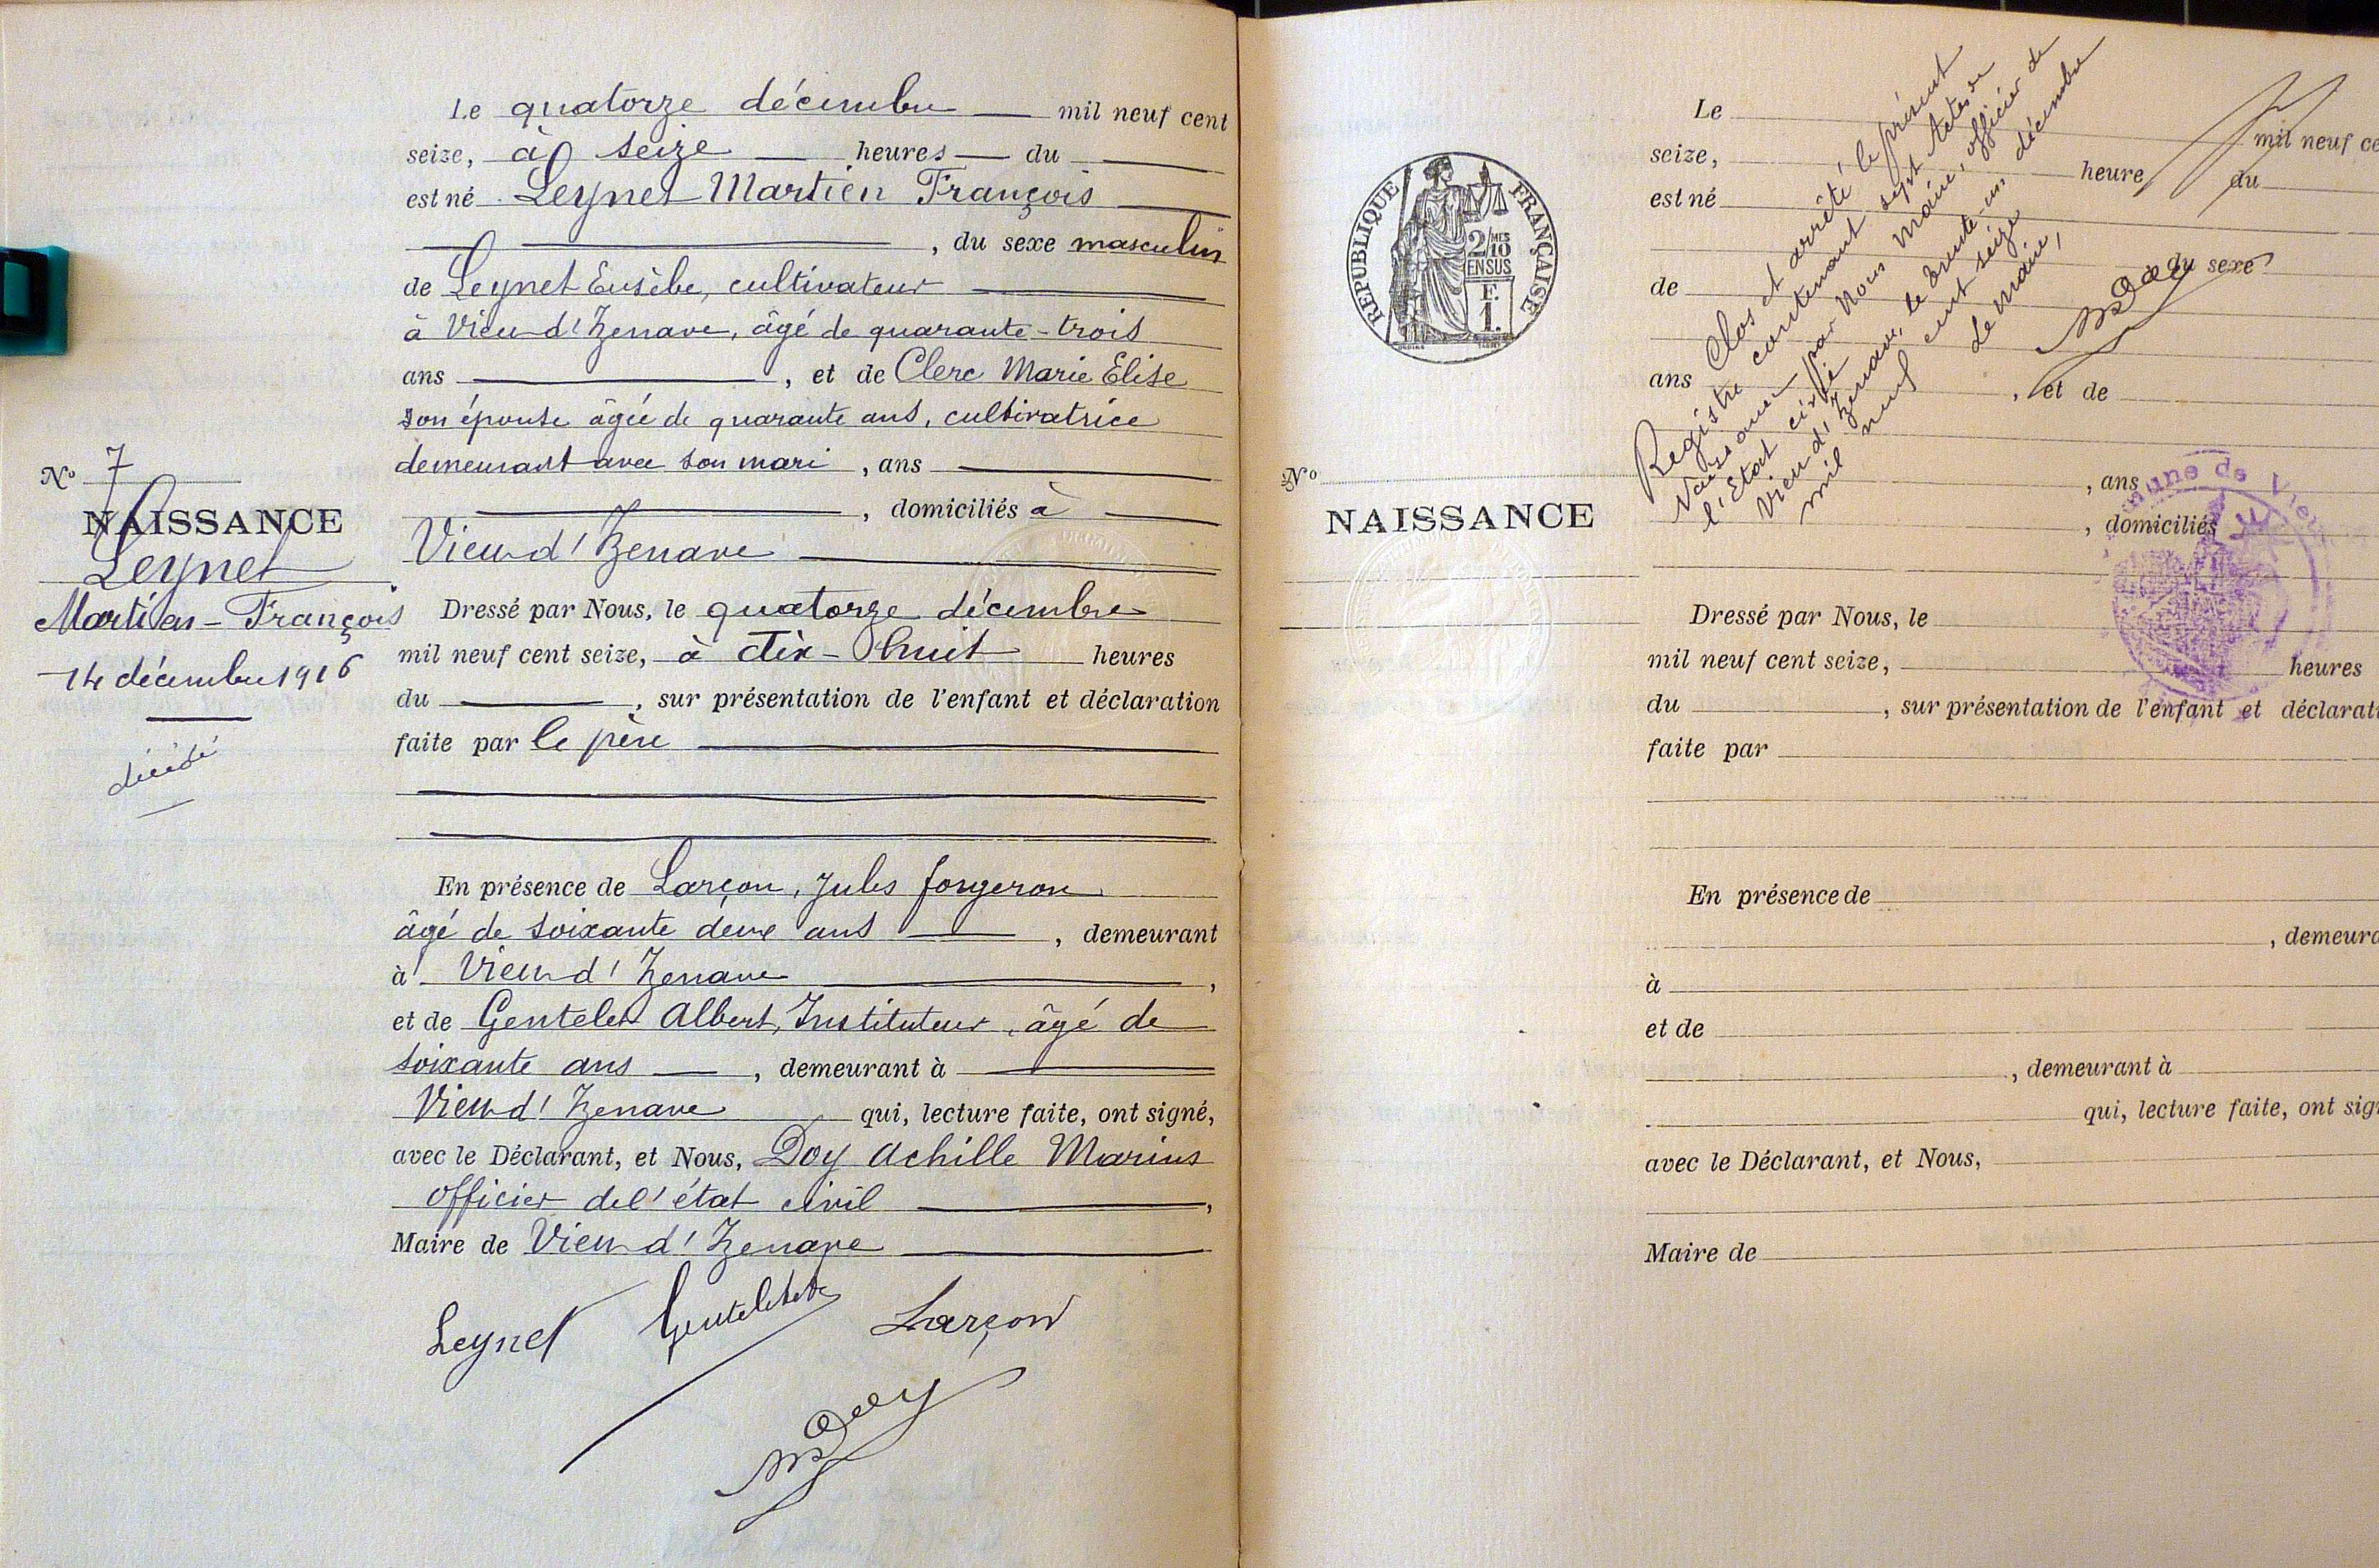 Le quatorze décembre mil neuf cent
seize, à seize heures du
est né Leynet Martien François
, du sexe masculin
de Leynet Eusèbe, cultivateur
à Vieu d'Izenave, âgé de quarante-trois
ans , et de Clerc Marie Elise
son épouse âgée de quarante ans, cultivatrice
demeurant avec son mari , ans
, domiciliés à
Vieu d'Izenave
No 7
NAISSANCE
Leynet
Martien-François
14 décembre 1916
décédé
Dressé par Nous, le quatorze décembre
mil neuf cent seize, à dix-huit heures
du , sur présentation de l'enfant et déclaration
faite par le père
En présence de Larçon, Jules forgeron
âgé de soixante deux ans , demeurant
à Vieu d'Izenave ,
et de Gentelet Albert, Instituteur, âgé de
soixante ans , demeurant à
Vieu d'Izenave qui, lecture faite, ont signé,
avec le Déclarant, et Nous, Doy Achille Marius
officier de l'état civil ,
Maire de Vieu d'Izenave
Leynet Gentelet Larçon
Doy
Le mil neuf ce
seize, heure du
est né
du sexe
de
ans , et de
, ans
, domiciliés
Clos et arrêté le présent
Registre contenant sept Actes de
Naissance par Nous Maire, officier de
l'Etat civil
Vieu d'Izenave, le trente-un décembre
mil neuf cent seize
Le Maire,
Doy
RÉPUBLIQUE FRANÇAISE
2/10
MES
EN SUS
F.
1.
No
NAISSANCE
mune de Vieu
Dressé par Nous, le
mil neuf cent seize, heures
du , sur présentation de l'enfant et déclarati
faite par
En présence de
, demeura
à
et de
, demeurant à
qui, lecture faite, ont sign
avec le Déclarant, et Nous,
Maire de